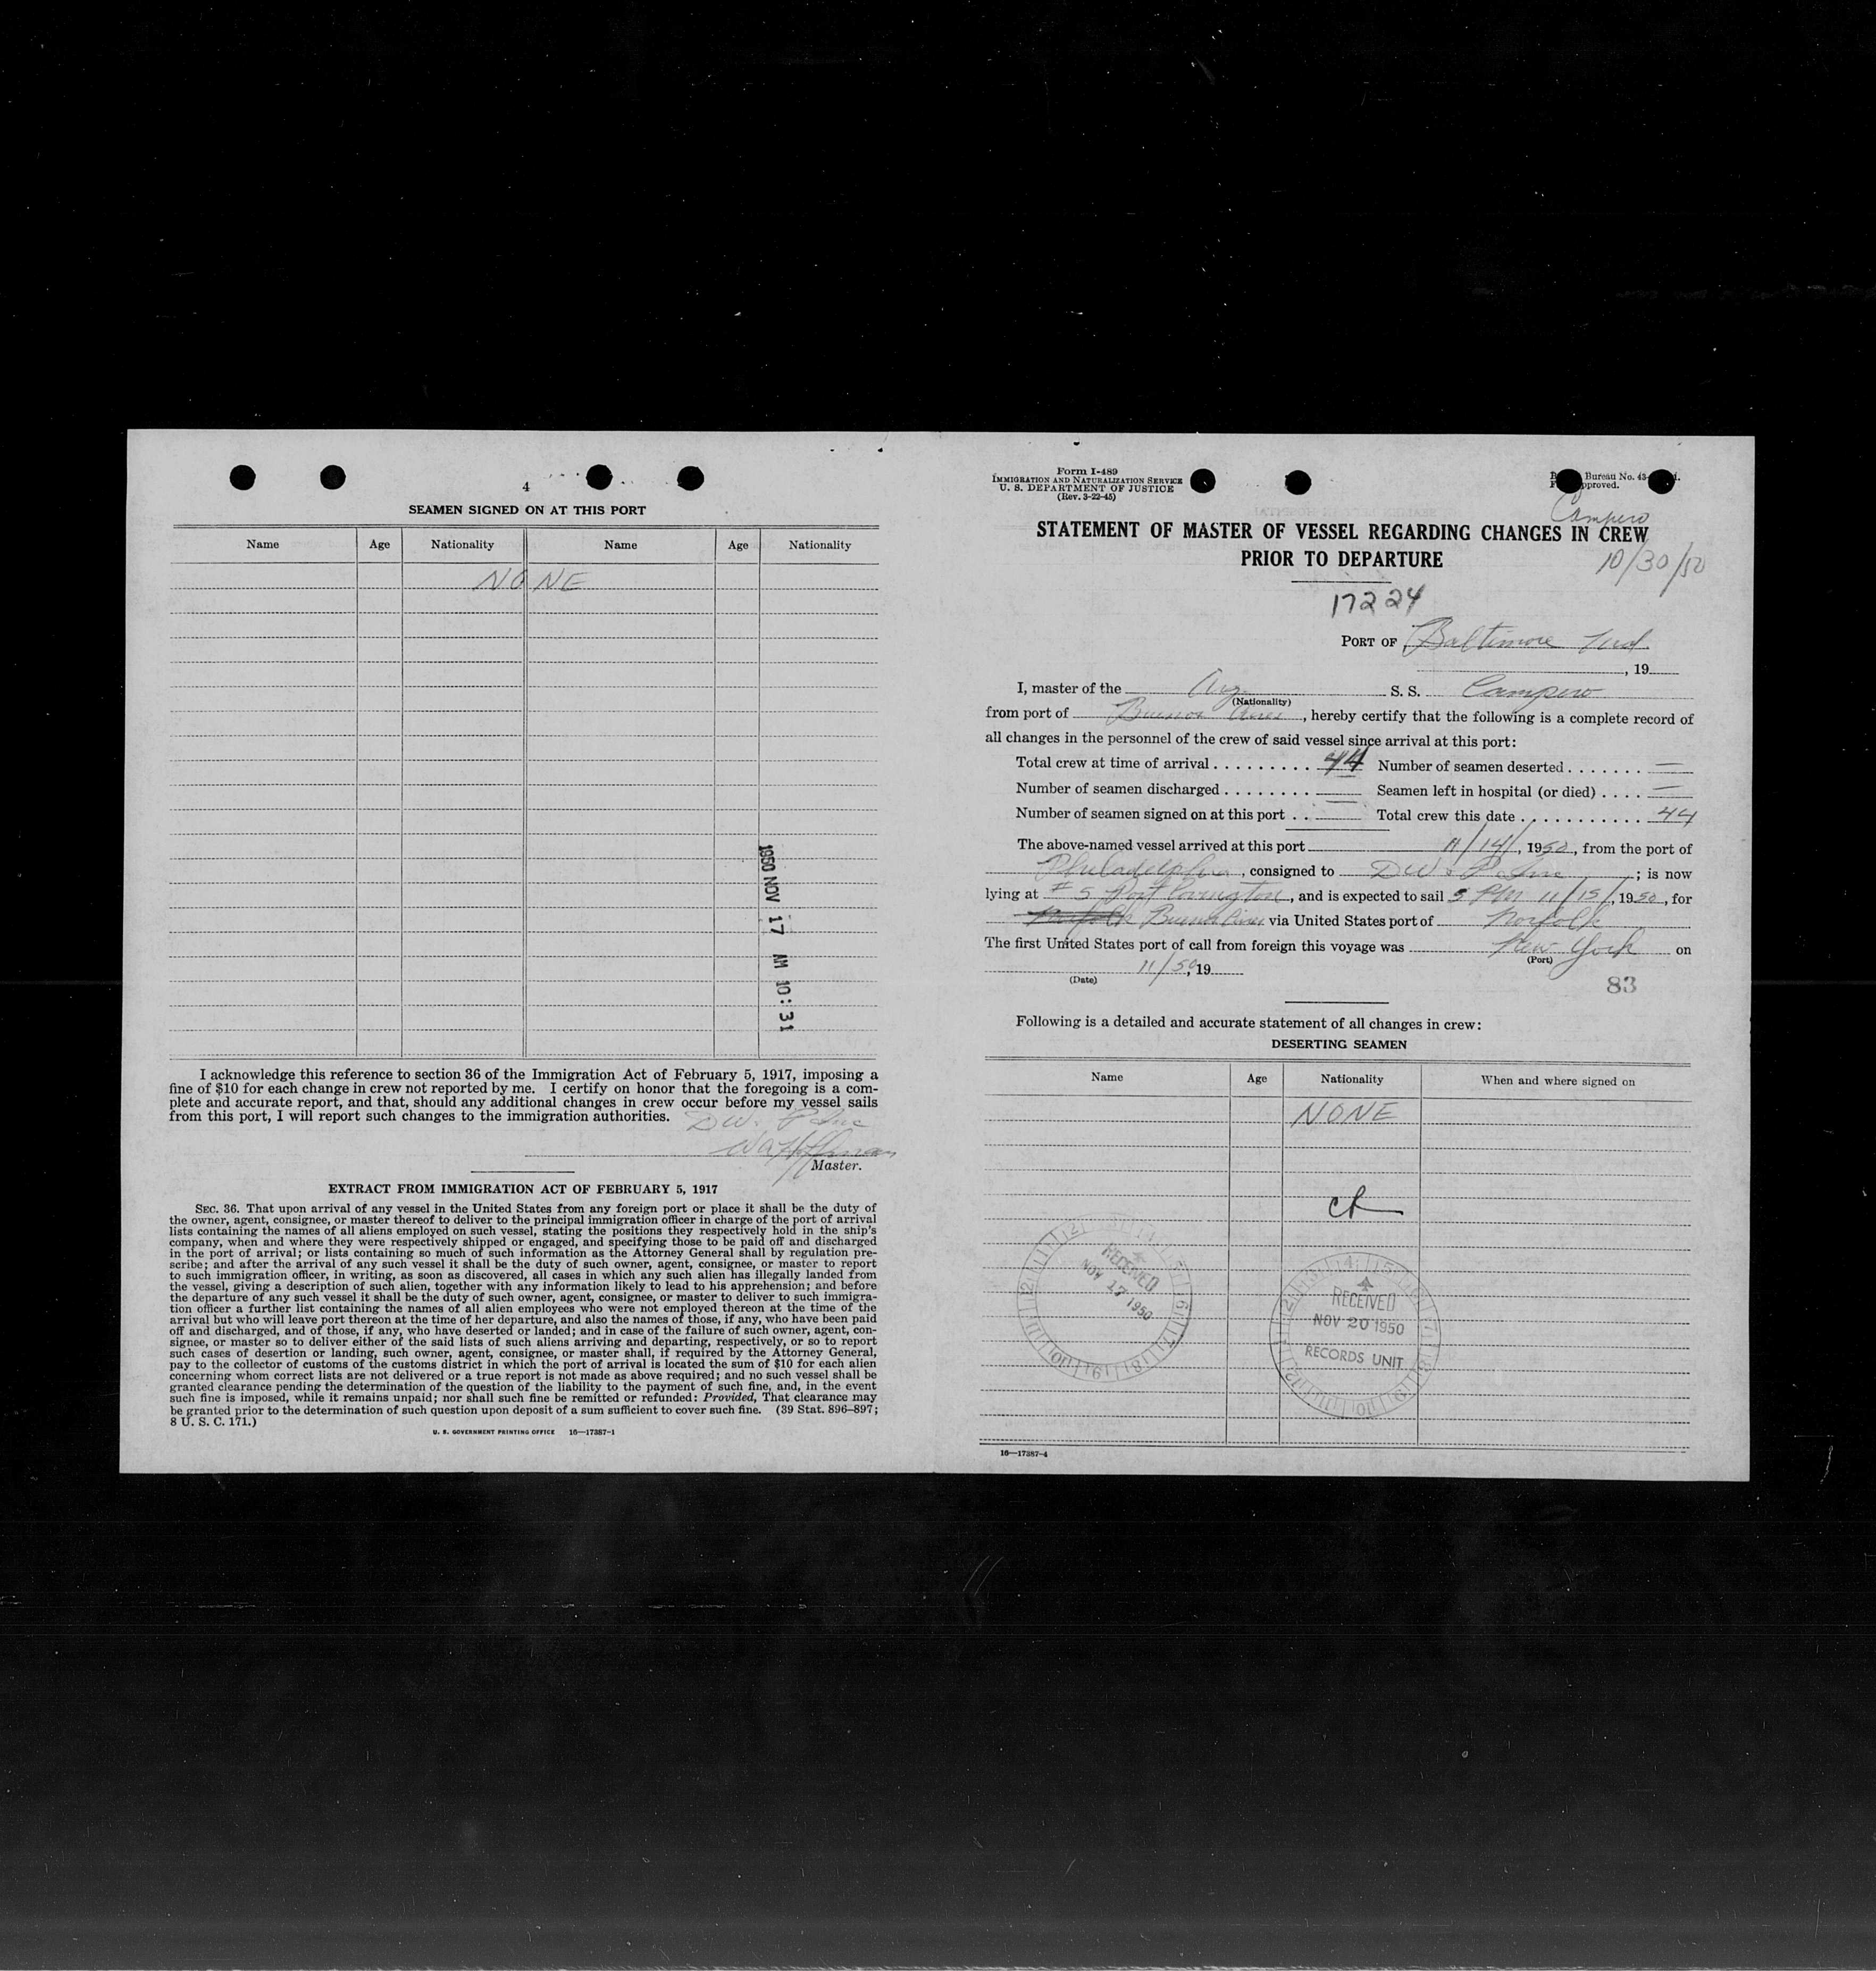 4
SEAMEN SIGNED ON AT THIS PORT
Name Age Nationality Name Age Nationality
NONE
1950 NOV 17 AM 10:31
I acknowledge this reference to section 36 of the Immigration Act of February 5, 1917, imposing a
fine of $10 for each change in crew not reported by me. I certify on honor that the foregoing is a com-
plete and accurate report, and that, should any additional changes in crew occur before my vessel sails
from this port, I will report such changes to the immigration authorities.
Master.
EXTRACT FROM IMMIGRATION ACT OF FEBRUARY 5, 1917
SEC. 36. That upon arrival of any vessel in the United States from any foreign port or place it shall be the duty of
the owner, agent, consignee, or master thereof to deliver to the principal immigration officer in charge of the port of arrival
lists containing the names of all aliens employed on such vessel, stating the positions they respectively hold in the ship's
company, when and where they were respectively shipped or engaged, and specifying those to be paid off and discharged
in the port of arrival; or lists containing so much of such information as the Attorney General shall by regulation pre-
scribe; and after the arrival of any such vessel it shall be the duty of such owner, agent, consignee, or master to report
to such immigration officer, in writing, as soon as discovered, all cases in which any such alien has illegally landed from
the vessel, giving a description of such alien, together with any information likely to lead to his apprehension; and before
the departure of any such vessel it shall be the duty of such owner, agent, consignee, or master to deliver to such immigra-
tion officer a further list containing the names of all alien employees who were not employed thereon at the time of the
arrival but who will leave port thereon at the time of her departure, and also the names of those, if any, who have been paid
off and discharged, and of those, if any, who have deserted or landed; and in case of the failure of such owner, agent, con-
signee, or master so to deliver either of the said lists of such aliens arriving and departing, respectively, or so to report
such cases of desertion or landing, such owner, agent, consignee, or master shall, if required by the Attorney General,
pay to the collector of customs of the customs district in which the port of arrival is located the sum of $10 for each alien
concerning whom correct lists are not delivered or a true report is not made as above required; and no such vessel shall be
granted clearance pending the determination of the question of the liability to the payment of such fine, and, in the event
such fine is imposed, while it remains unpaid; nor shall such fine be remitted or refunded: Provided, That clearance may
be granted prior to the determination of such question upon deposit of a sum sufficient to cover such fine. (39 Stat. 896–897;
8 U. S. C. 171.)
U. S. GOVERNMENT PRINTING OFFICE 16—17387-1
Form I-489
IMMIGRATION AND NATURALIZATION SERVICE
U. S. DEPARTMENT OF JUSTICE
(Rev. 3-22-45)
Bureau No. 43-
Campero
STATEMENT OF MASTER OF VESSEL REGARDING CHANGES IN CREW
PRIOR TO DEPARTURE
10/30/50
17224
PORT OF Baltimore Md.
, 19
I, master of the Arg S. S. Campero
(Nationality)
from port of Buenos Aires, hereby certify that the following is a complete record of
all changes in the personnel of the crew of said vessel since arrival at this port:
Total crew at time of arrival . . . . . . . . . 44 Number of seamen deserted . . . . . . . —
Number of seamen discharged . . . . . . . . — Seamen left in hospital (or died) . . . . —
Number of seamen signed on at this port . . — Total crew this date . . . . . . . . . . . . 44
The above-named vessel arrived at this port 11/14/, 1950, from the port of
Philadelphia, consigned to ; is now
lying at # 5 Port Covington, and is expected to sail 5 PM 11/15/, 1950, for
Buenos Aires via United States port of Norfolk
The first United States port of call from foreign this voyage was New York on
(Port)
11/5, 19
(Date)
83
Following is a detailed and accurate statement of all changes in crew:
DESERTING SEAMEN
Name Age Nationality When and where signed on
NONE
RECEIVED
NOV 17 1950
RECEIVED
NOV 20 1950
RECORDS UNIT
16—17387-4